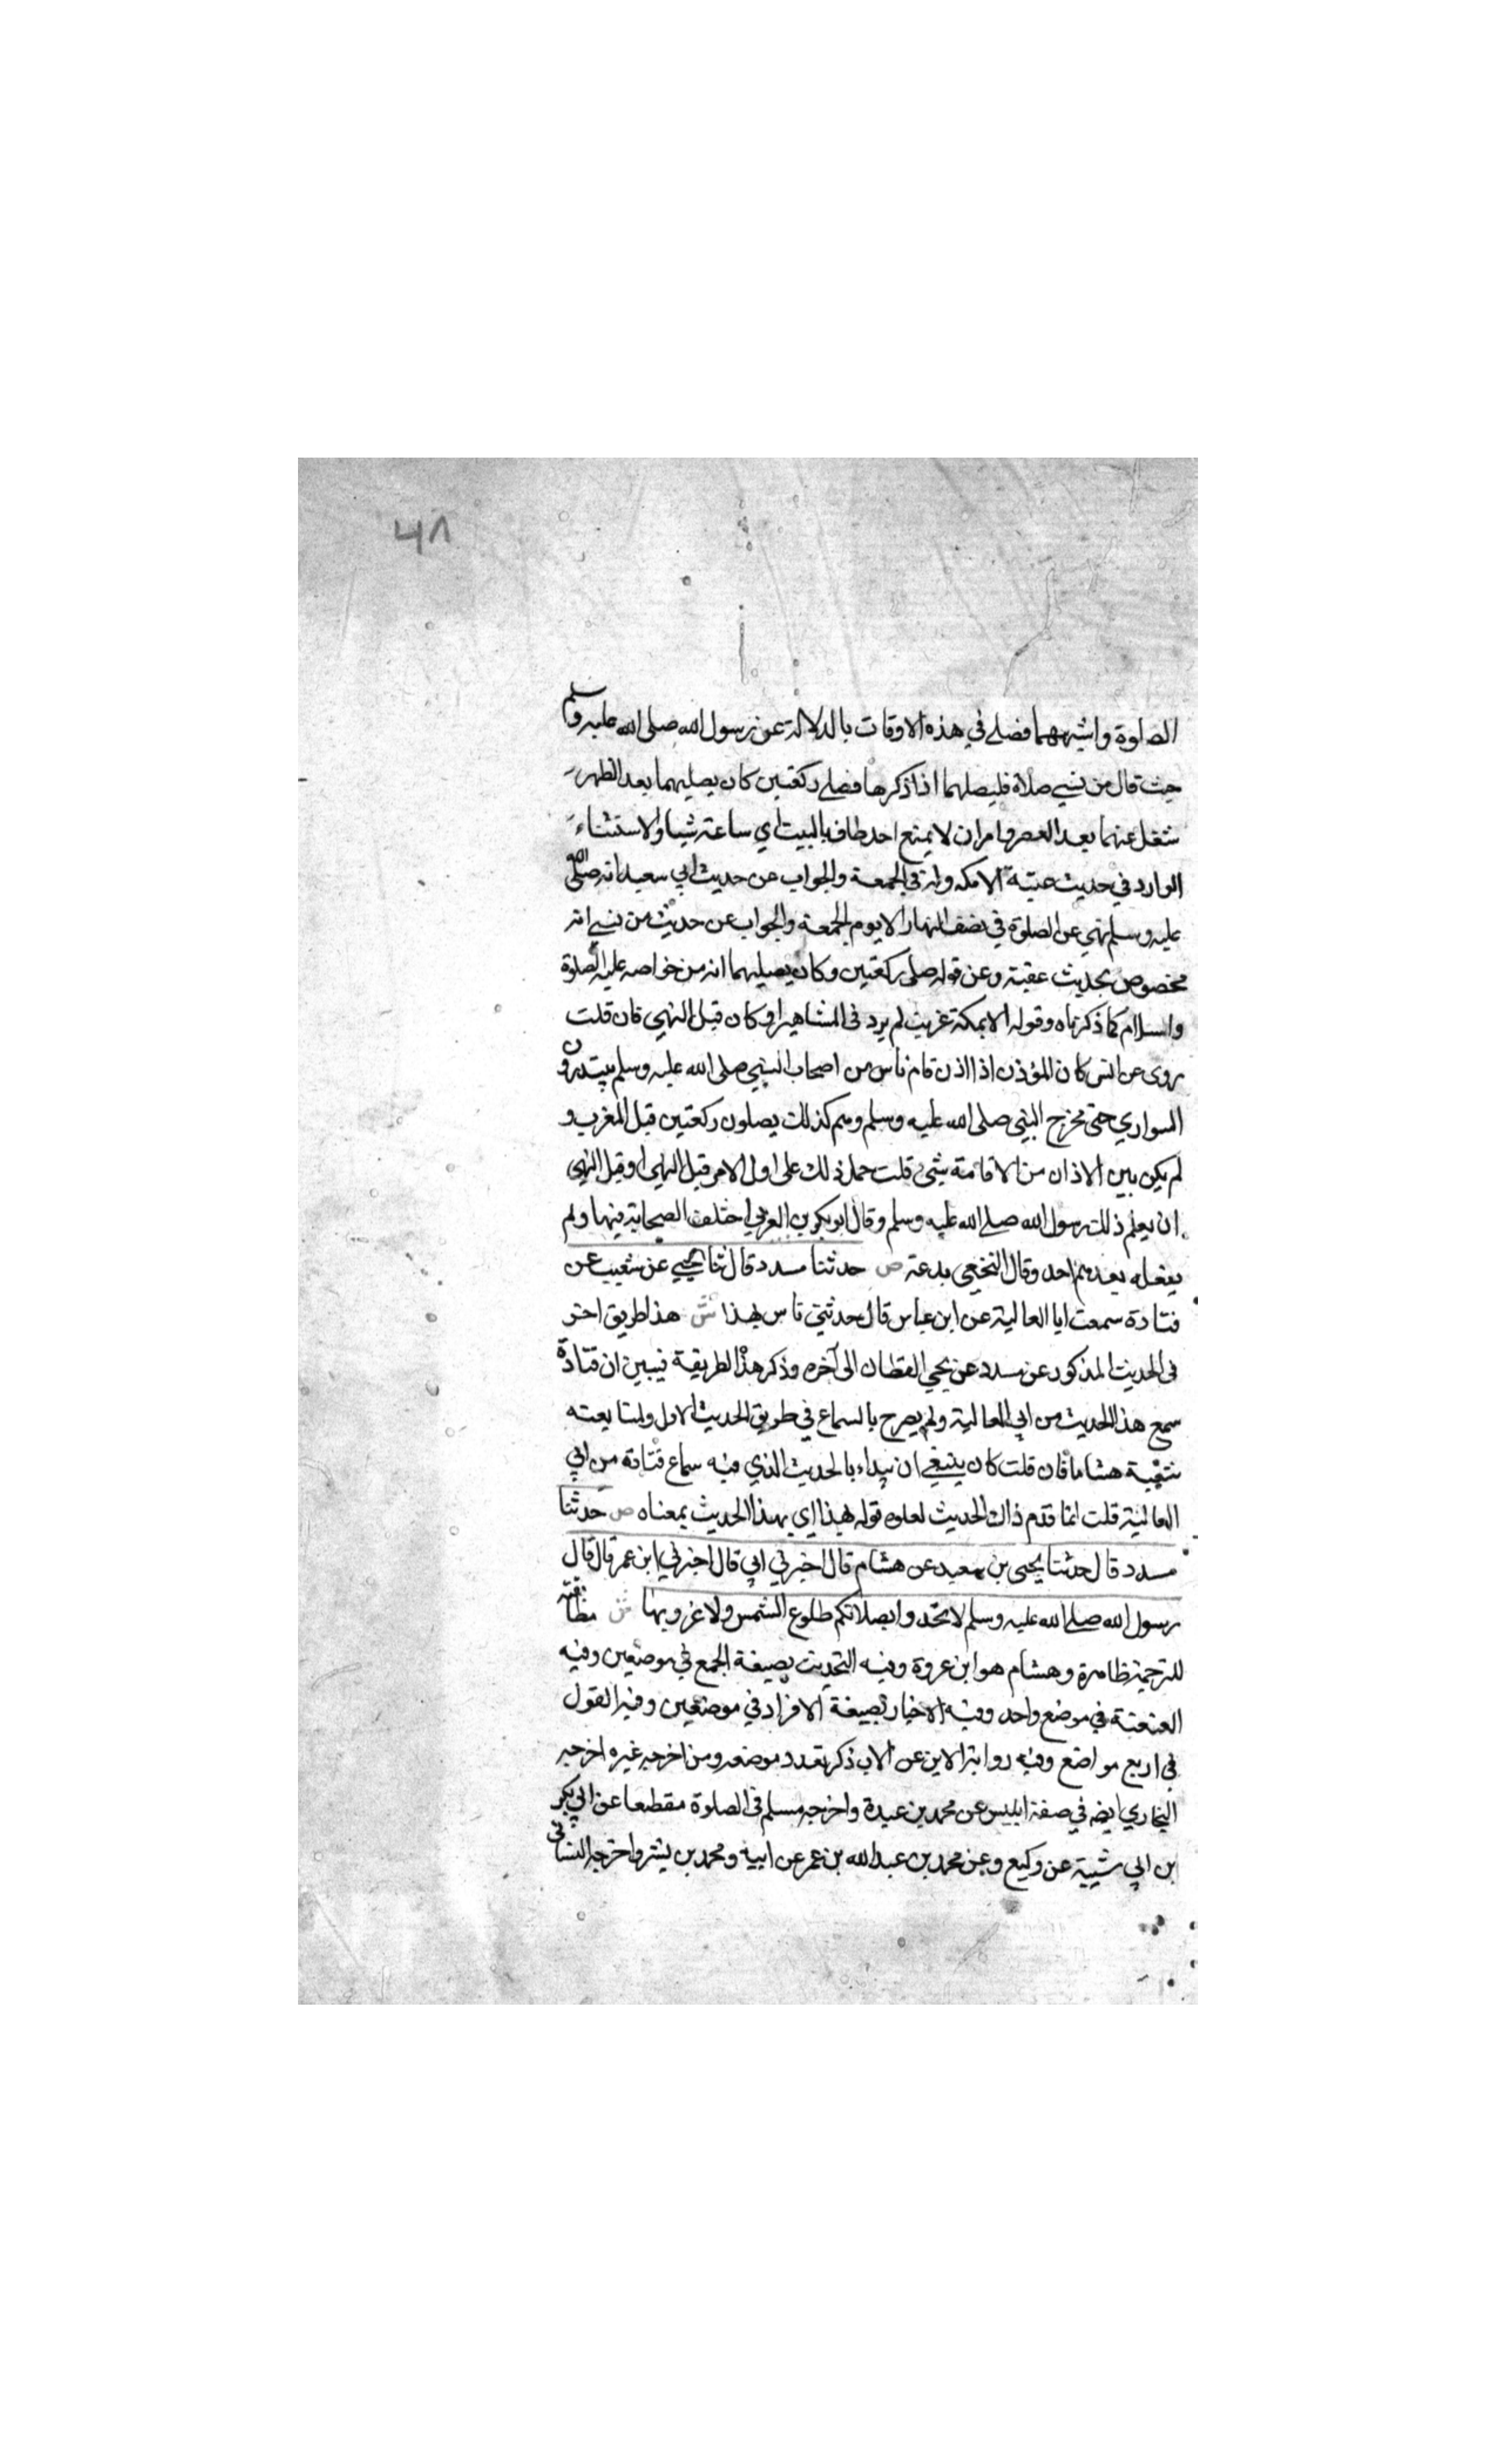 ٤٨
الصلوة واشبههما فصلى في هذه الاوقات بالدلالة عن رسول الله صلى الله عليه وسلم
حيث قال من نسي صلاة فليصلها اذا ذكرها فصلى ركعتين كان يصليهما بعد الظهر
شغل عنهما بعد العصر وامران لا يمنع احد طاف بالبيت اي ساعة شيا والاستثناء
الوارد في حديث عتبة الا مكه وله في الجمعة والجواب عن حديث ابي سعيد انه صلى الله
عليه وسلم نهي عن الصلوة في نصف النهار الا يوم الجمعة والجواب عن حديث من نسي انه
مخصوص بحديث عقبة وعن قوله صلى ركعتين وكان يصليهما انه من خواصه عليه الصلوة
والسلام كما ذكرناه وقوله الا بمكة غريب لم يرد في المشاهير او كان قبل النهي فان قلت
روى عن انس كان المؤذن اذا اذن قام ناس من اصحاب النبي صلى الله عليه وسلم يبتدرون
السواري حتى يخرج النبي صلى الله عليه وسلم وهم كذلك يصلون ركعتين قبل المغرب و
لم يكن بين الاذان من الاقامة شئ قلت حمل ذلك على اول الامر قبل النهي او قبل النهي
ان يعلم ذلك رسول الله صلى الله عليه وسلم وقال ابو بكر بن العربي اختلف الصحابة فيها ولم
يفعله بعدهم احد وقال النخعي بدعة ص حدثنا مسدد قال ثنا يحيي عن شعيب عن
قتادة سمعت ابا العالية عن ابن عباس قال حدثني ناس بهذا ش هذا طريق اخر
في الحديث المذكور عن مسدد عن يحي القطان الى آخره وذكر هذا الطريقة نيبين ان قتادة
سمع هذا الحديث من ابي العالية ولم يصرح بالسماع في طريق الحديث الاول ولمتابعته
شعبة هشاما فان قلت كان ينبغي ان يبداء بالحديث الذي فيه سماع قتادة من ابي
العالية قلت انما قدم ذاك الحديث لعلوه قوله بهذا اي بهذا الحديث بمعناه ص حدثنا
مسدد قال حدثنا يحيى بن سعيد عن هشام قال اخبرني ابي قال اخبرني ابن عمر قال قال
رسول الله صلى الله عليه وسلم لا تحروا بصلاتكم طلوع الشمس ولا غروبها ش مطابقته
للترجمة ظاهرة وهشام هو ابن عروة وفيه التحديث بصيغة الجمع في موضعين وفيه
العنعنة في موضع واحد وفيه الاخبار بصيغة الافراد في موضعين وفيه القول
في اربع مواضع وفيه رواية الابن عن الاب ذكر تعدد موضعه ومن اخرجه غيره اخرجه
البخاري ايضه في صفة ابليس عن محمد بن عبدة واخرجه مسلم في الصلوة مقطعا عن ابي بكر
بن ابي شيبة عن وكيع وعن محمد بن عبد الله بن عمر عن ابيه ومحمد بن بشر واخرجه النسائي